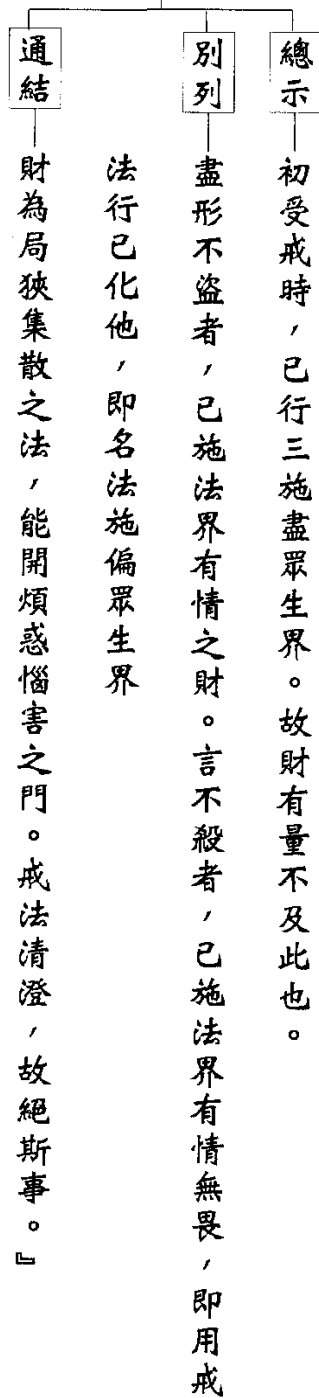 總示
初受戒時，已行三施盡眾生界。故財有量不及此也。
別列
盡形不盜者，已施法界有情之財。言不殺者，已施法界有情無畏，即用戒
法行已化他，即名法施徧眾生界
通結
財為局狹集散之法，能開煩惑惱害之門。戒法清澄，故絕斯事。』